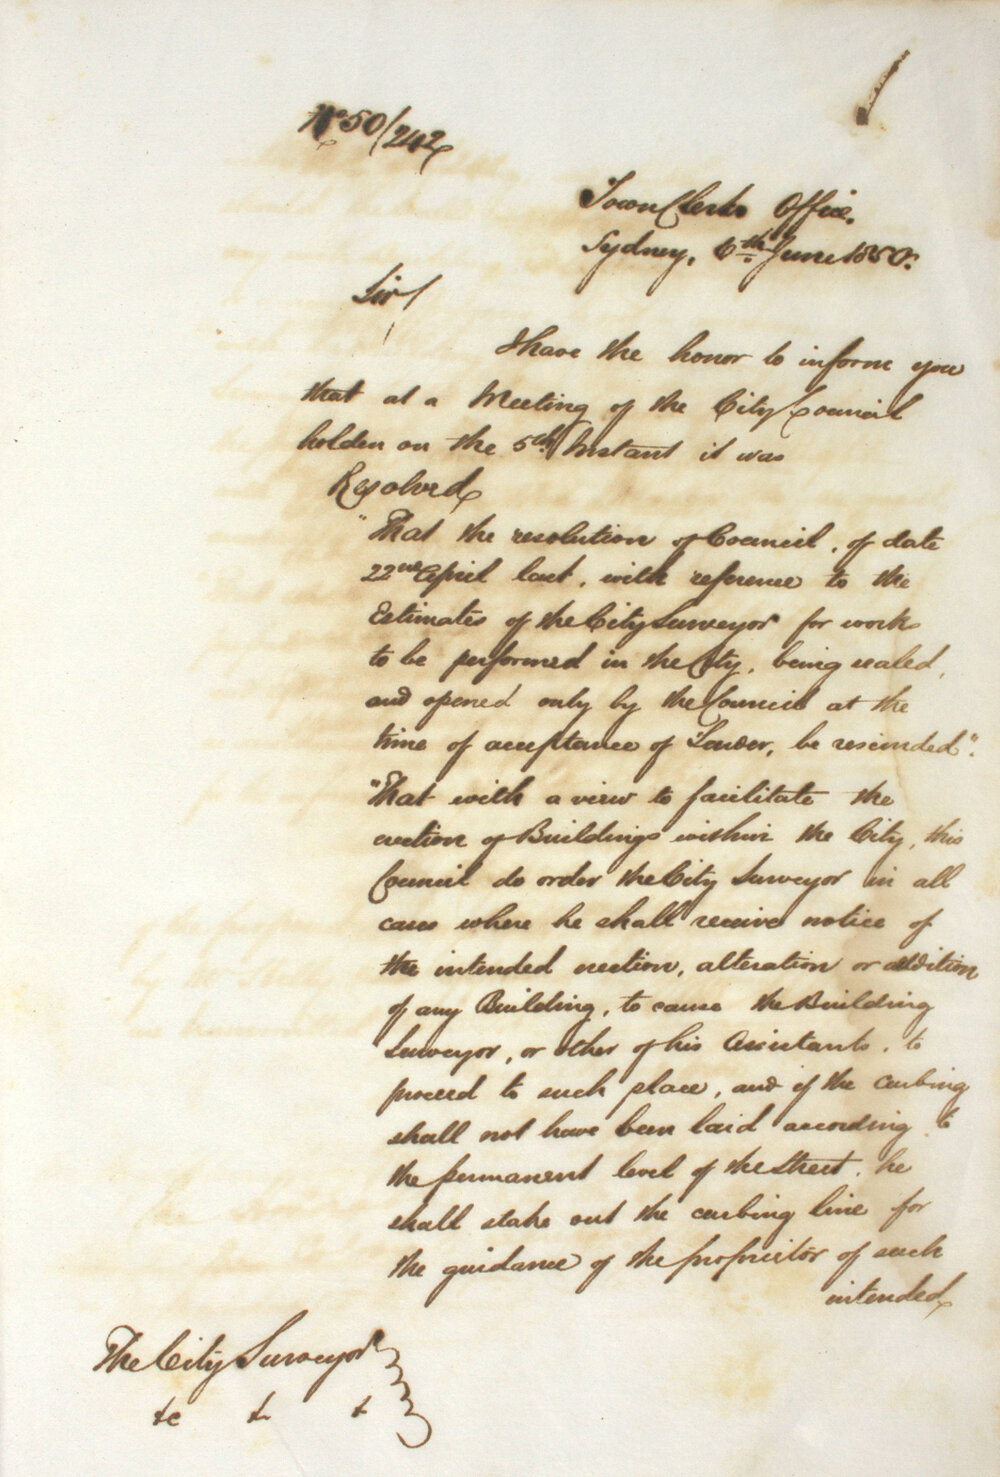 No 50/242
Town Clerks Office.
Sydney, 6th June 1850.
Sir/
I have the honor to inform you
that at a Meeting of the City Council
holden on the 5th Instant it was
Resolved
"That the resolution of Council, of date
22nd April last, with reference to the
Estimates of the City Surveyor for works
to be performed in the City, being sealed,
and opened only by the Council at the
time of acceptance of Tender, be rescinded".
"That with a view to facilitate the
erection of Buildings within the City, this
Council do order the City Surveyor in all
cases where he shall receive notice of
the intended erection, alteration or addition
of any Building, to cause the Building
Surveyor, or other of his Assistants, to
proceed to such place, and if the curbing
shall not have been laid according to
the permanent level of the Street, he
shall stake out the curbing line for
the guidance of the proprietor of such
intended
The City Surveyor
&c & &